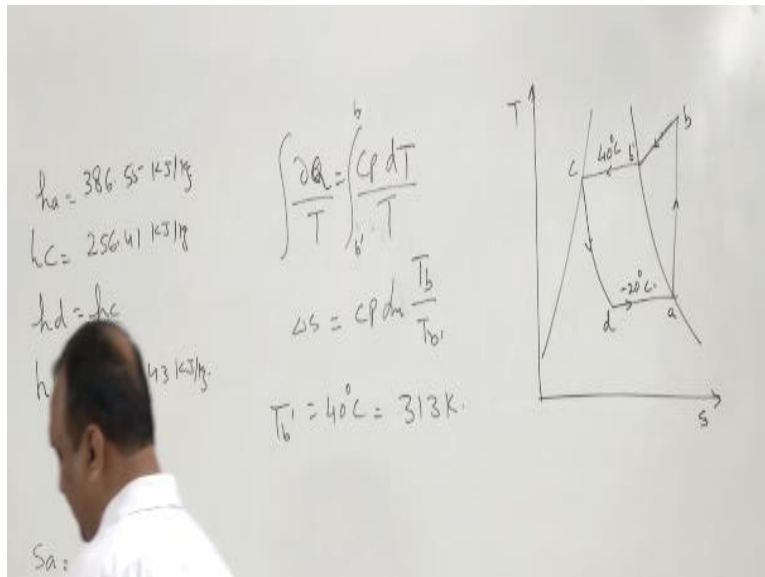 ha = 386.55 KJ/kg
hc = 256.41 KJ/kg
hd = hc
h 43 KJ/kg.
Sa =
∫ ∂Q/T = ∫ b' b Cp dT/T
Δs = Cp ln Tb/Tb'
Tb' = 40°C = 313K.
T
b
40°C
b'
c
-20°C.
d
a
s